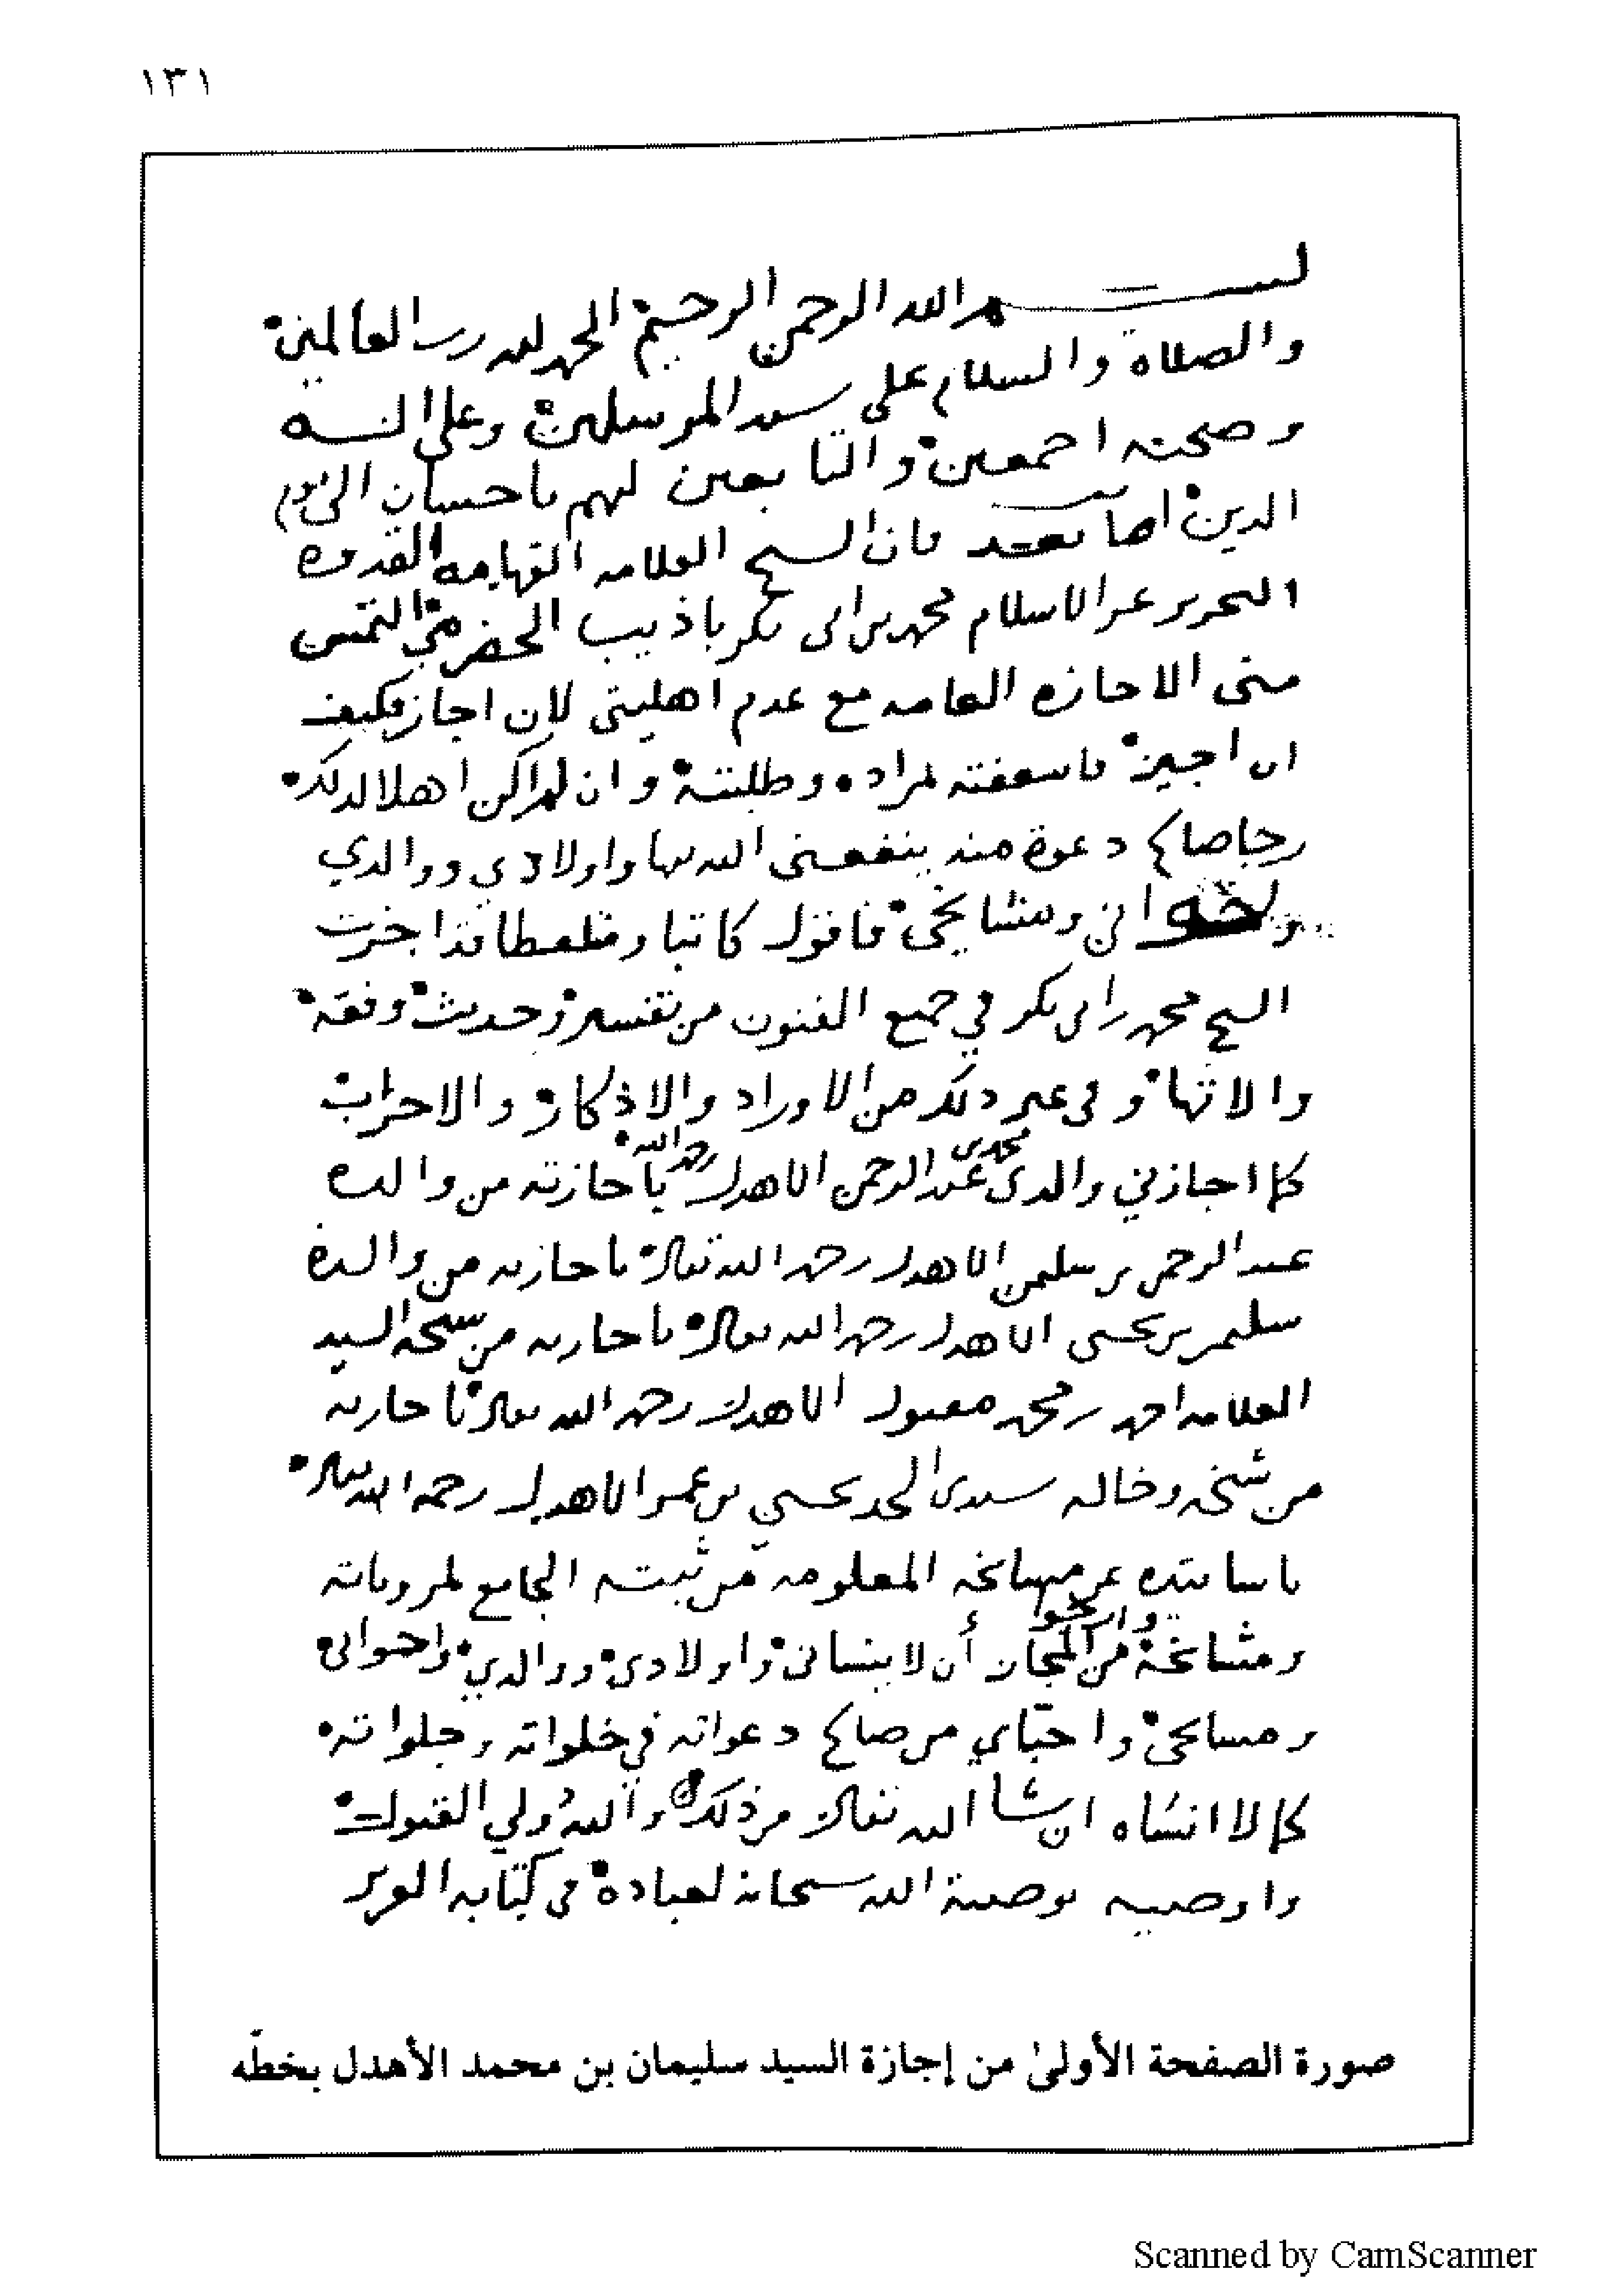 ١٣١
بسم الله الرحمن الرحيم الحمد لله رب العالمين
والصلاة والسلام على سيد المرسلين وعلى اله
وصحبه اجمعين والتابعين لهم باحسان الى يوم
الدين اما بعد فان الشيخ العلامه الفهامه القدوه
النحرير عز الاسلام محمد بن ابى بكر باذيب الحضرمي التمس
منى الاجازه العامه مع عدم اهليتى لان اجاز فكيف
ان اجيز فاسعفته لمراده وطلبته وان لم اكن اهلا لذلك
رجا صالح دعوة منه ينفعنى الله بها واولادي ووالدي
واخوانى ومشايخى فاقول كاتبا ومتلفظا قد اجزت
الشيخ محمد بن ابى بكر في جميع الفنون من تفسير وحديث وفقه
والاتها وفى غير ذلك من الاوراد والاذكار والاحزاب
كما اجازني والدى محمد بن عبد الرحمن الاهدل رحمه الله باجازته من والده
عبد الرحمن بن سليمن الاهدل رحمه الله تعالى باجازته من والده
سليمن بن يحيى الاهدل رحمه الله تعالى باجازته من شيخه السيد
العلامه احمد بن محمد مقبول الاهدل رحمه الله تعالى باجازته
من شيخه وخاله سيدى الجد يحيي بن عمر الاهدل رحمه الله تعالى
باسانيده عن مشايخه المعلومه من ثبته الجامع لمروياته
ومشايخه وارجوا من المجاز أن لا ينسانى واولادى ووالدي واخوانى
ومشايخى واحبّاي من صالح دعواته في خلواته وجلواته
كما لا انساه ان شا الله تعالى من ذلك والله ولي القبول
واوصيه بوصية الله سبحانه لعباده فى كتابه العزيز
صورة الصفحة الأولىٰ من إجازة السيد سليمان بن محمد الأهدل بخطّه
Scanned by CamScanner